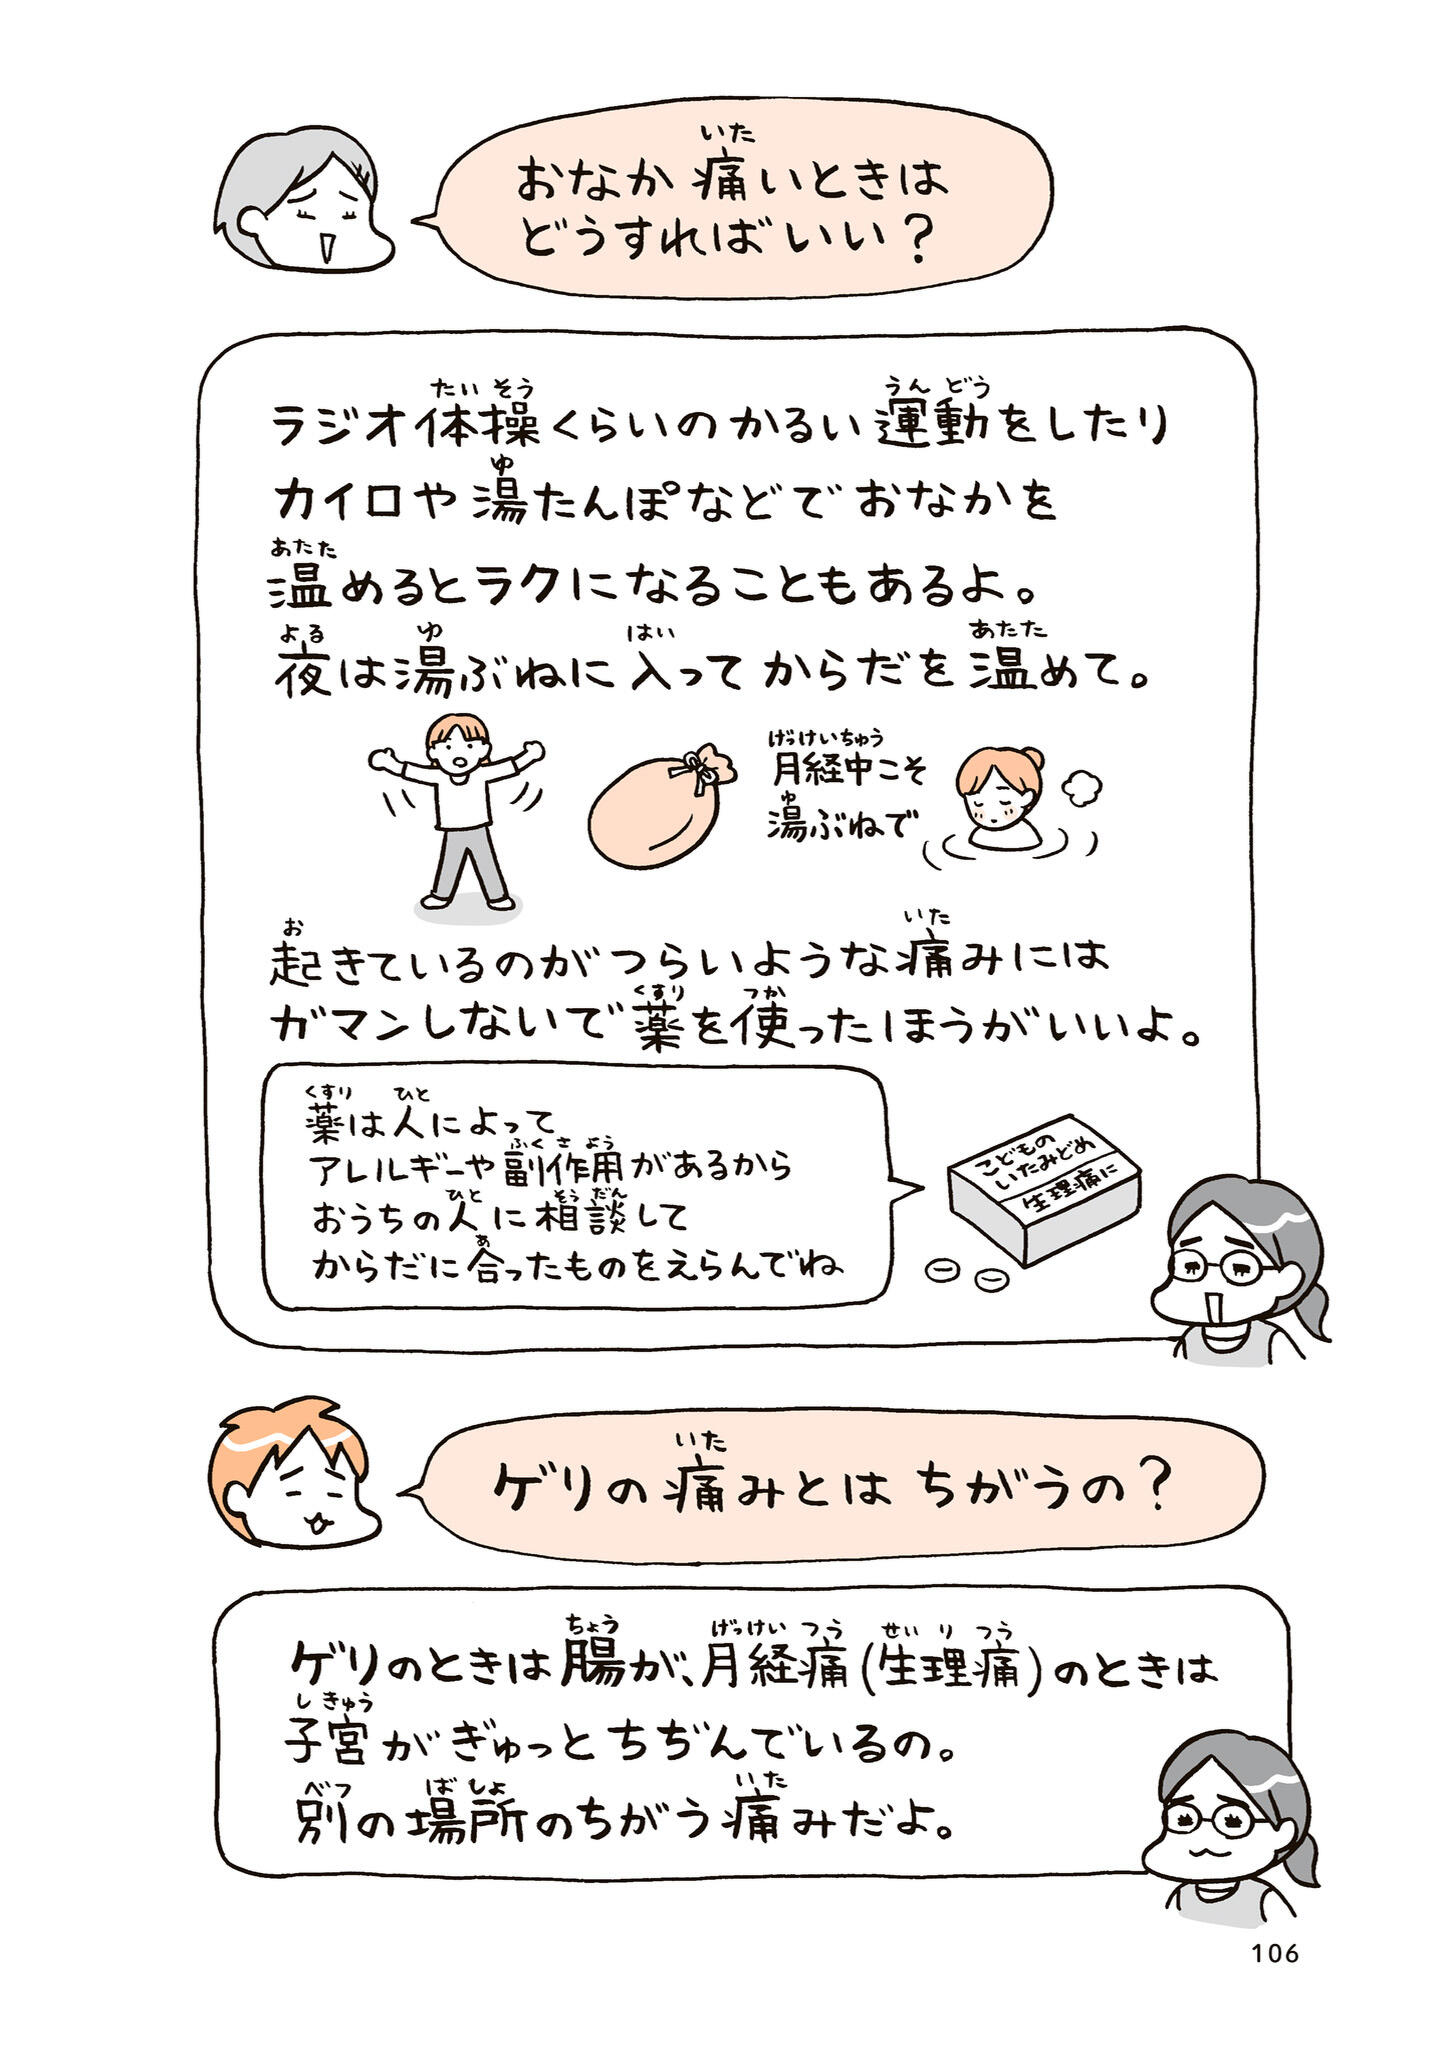 おなか痛いときは
どうすればいい？
ラジオ体操くらいのかるい運動をしたり
カイロや湯たんぽなどでおなかを
温めるとラクになることもあるよ。
夜は湯ぶねに入ってからだを温めて。
月経中こそ
湯ぶねで
起きているのがつらいような痛みには
ガマンしないで薬を使ったほうがいいよ。
薬は人によって
アレルギーや副作用があるから
おうちの人に相談して
からだに合ったものをえらんでね
こどもの
いたみどめ
生理痛に
ゲリの痛みとはちがうの？
ゲリのときは腸が、月経痛(生理痛)のときは
子宮がぎゅっとちぢんでいるの。
別の場所のちがう痛みだよ。
106